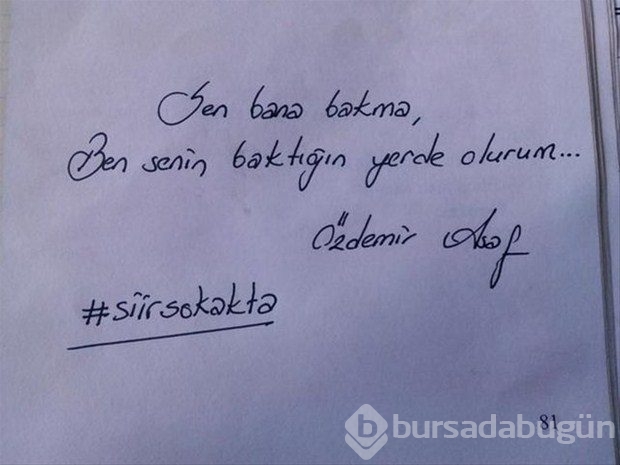 Sen bana bakma,
Ben senin baktığın yerde olurum...
Özdemir Asaf
#siirsokakta
81
bursadabugün